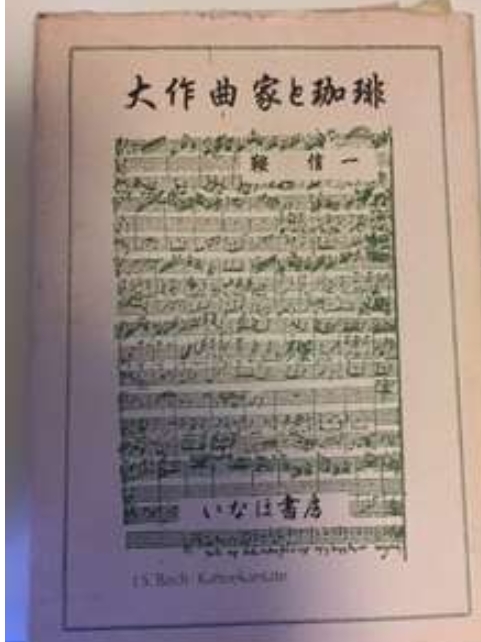 大作曲家と珈琲
鞍 信一
いなほ書房
J.S. Bach : Kaffeekantate